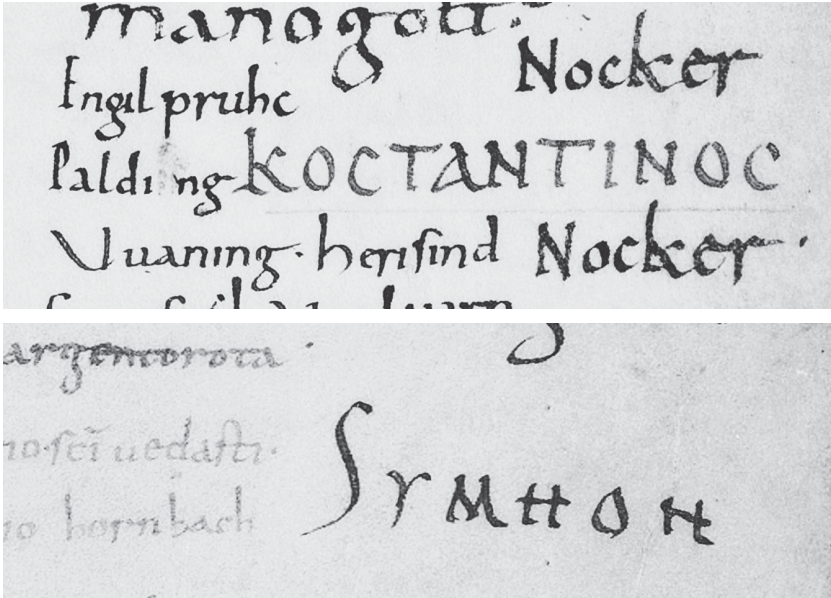 manogott.
Engilpruhc
Nocker
Palding KOCTANTINOC
Vuaning. herisind Nocker.
argentorota.
no. scī uedasti.
no hornbach
SYMHON